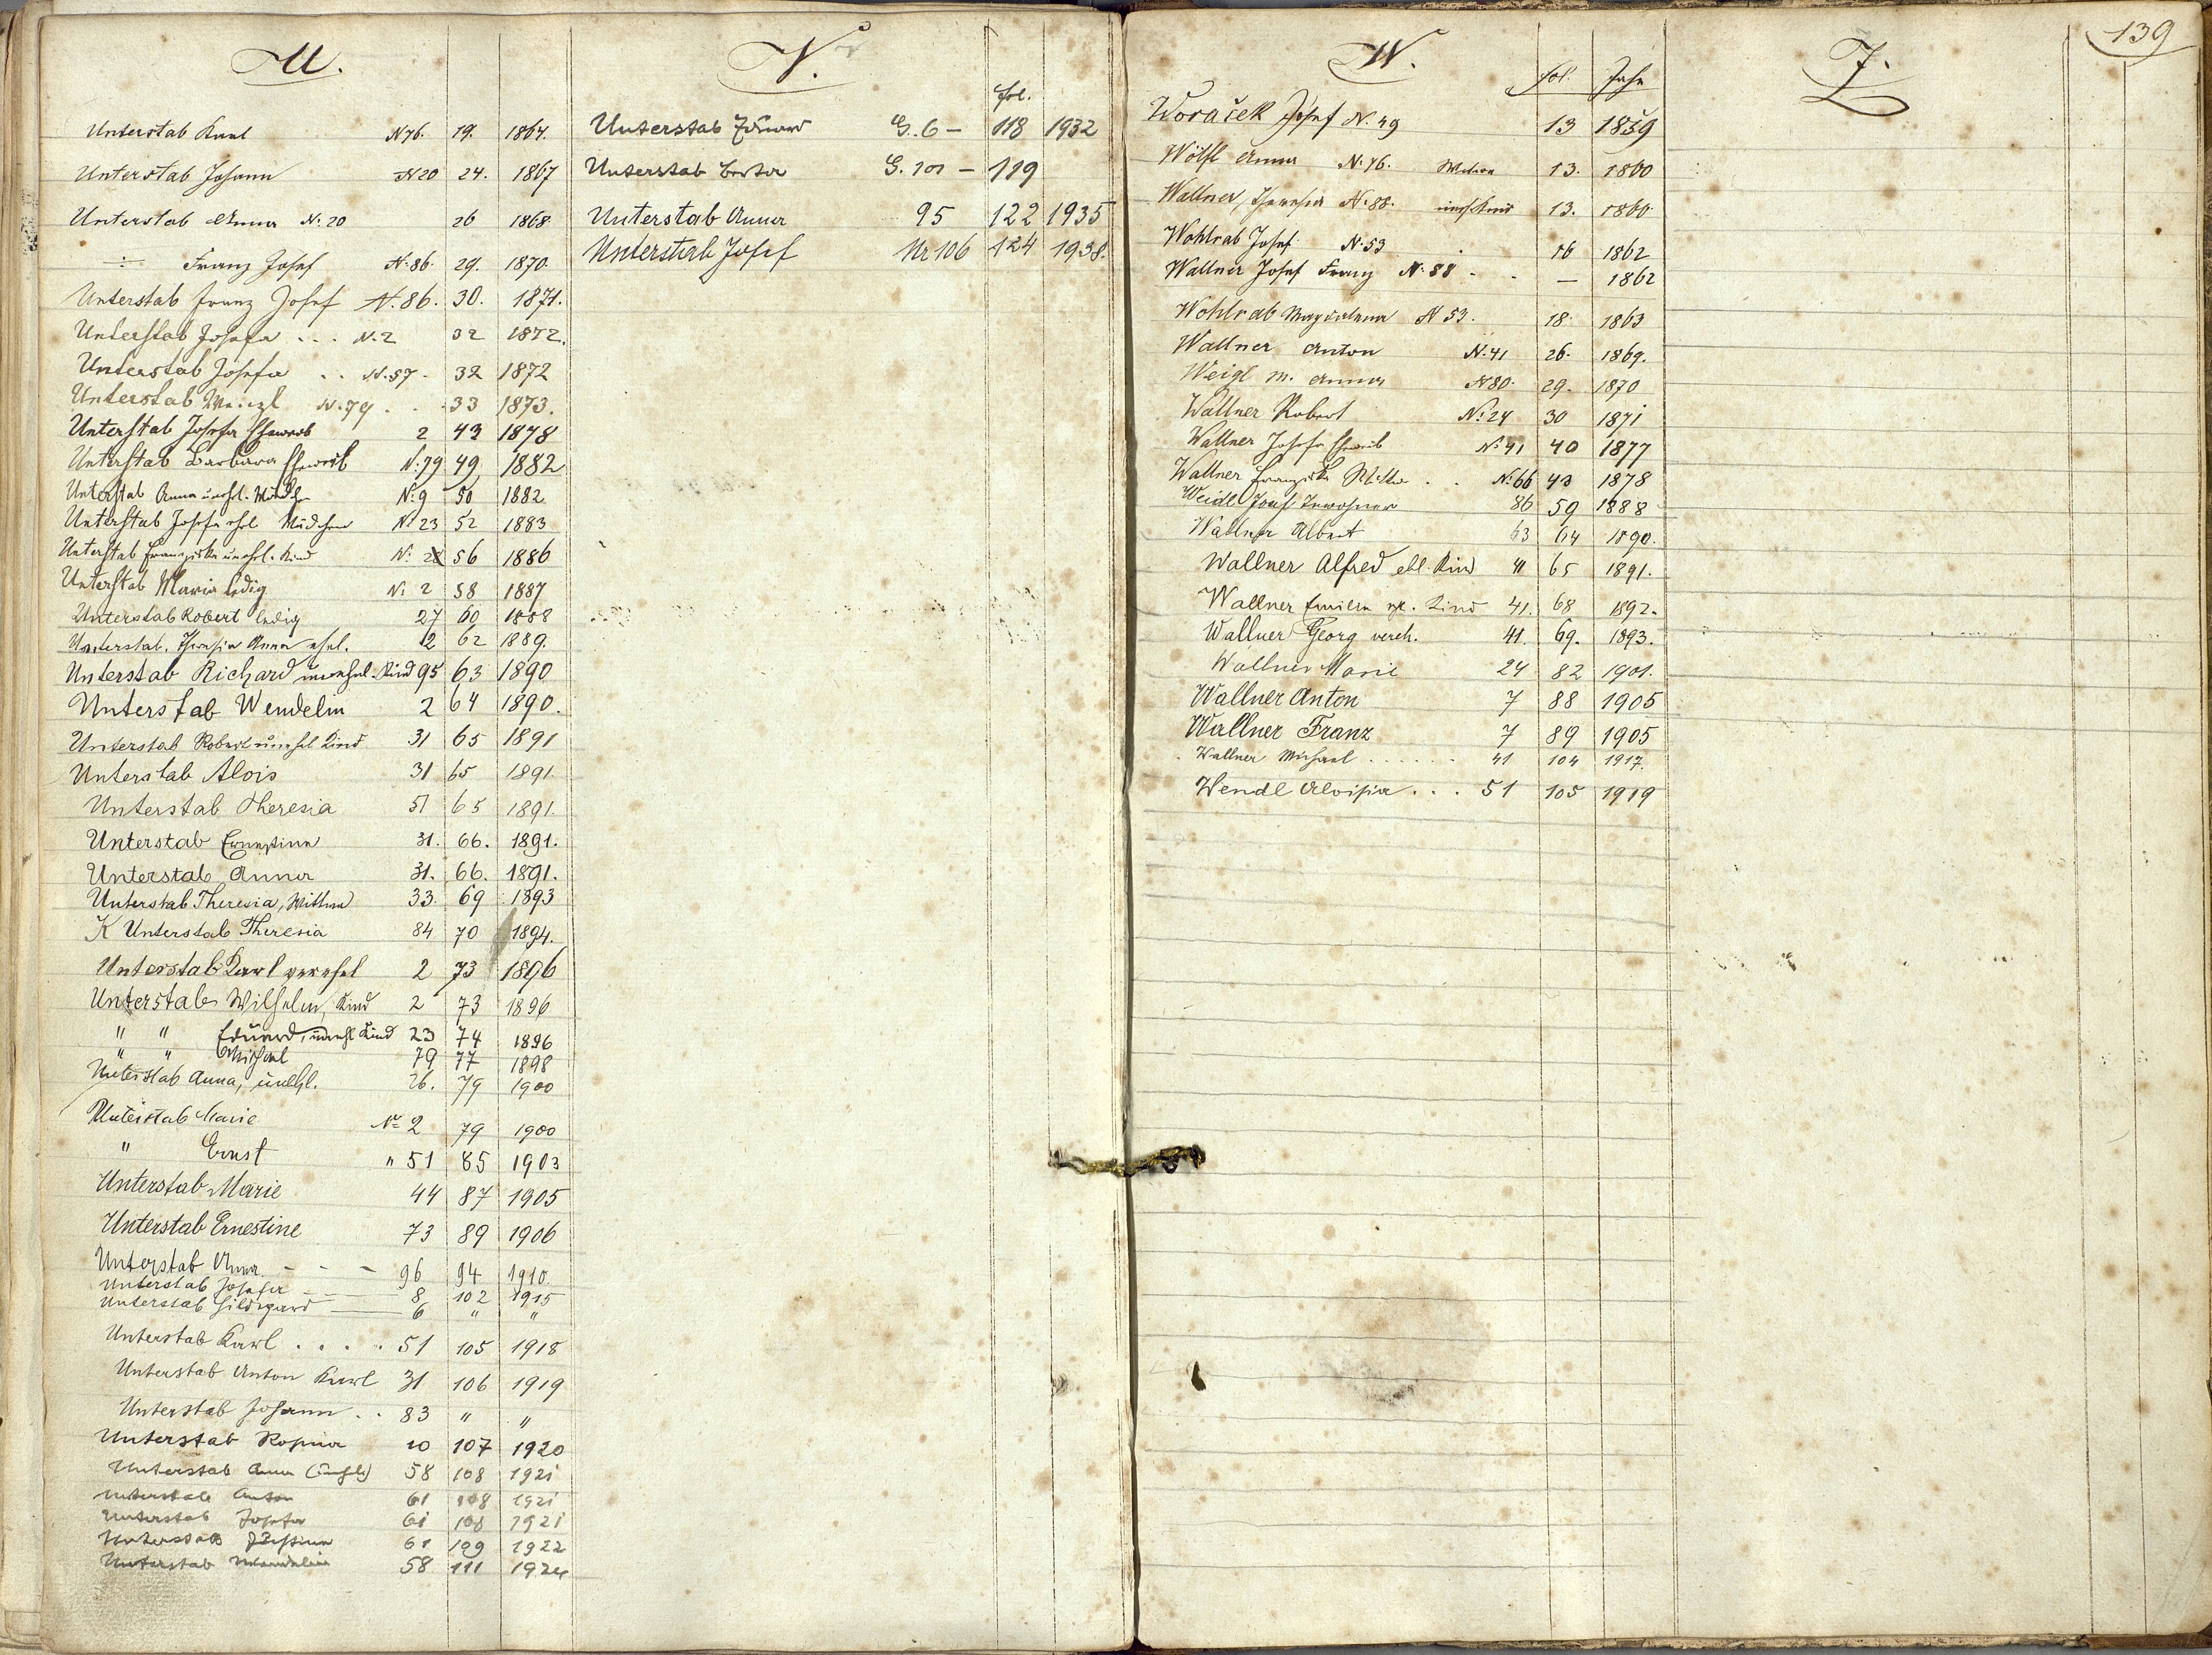 U.
Unterstab Karl N 76. 19. 1864.
Unterstab Johann N 20 24. 1867
Unterstab Anna N. 20 26 1868
Franz Josef N. 86. 29. 1870.
Unterstab Franz Josef N. 86. 30. 1871.
Unterstab Josefa . . . N. 2 32 1872.
Unterstab Josefa . . N. 57. 32 1872
Unterstab Wenzl N. 79 . . 33 1873.
Unterstab Josefa Eheweib 2 43 1878
Unterstab Barbara Eheweib N: 79 49 1882
Unterstab Anna unehl. N: 9 50 1882
Unterstab Josefa ehl Mädchen N: 23 52 1883
Unterstab Franziska unehl. Kind N: 56 1886
Unterstab Maria ledig N: 2 58 1887
Unterstab Robert ledig 27 60 1888
Unterstab. Theresia Anna ehel. 2 62 1889.
Unterstab Richard unehel. Kind 95 63 1890
Unterstab Wendelin 2 64 1890.
Unterstab Robert unehel Kind 31 65 1891
Unterstab Alois 31 65 1891
Unterstab Theresia 51 65 1891.
Unterstab Ernestine 31. 66. 1891.
Unterstab Anna 31. 66. 1891.
Unterstab Theresia, Wittwe 33. 69 1893
K Unterstab Theresia 84 70 1894.
Unterstab Karl verehel 2 73 1896
Unterstab Wilhelm, Kind 2 73 1896
" " Eduard, unehl Kind 23 74 1896
" " Michael 79 77 1898
Unterstab Anna, unehl. 26. 79 1900
Unterstab Marie No 2 79 1900
" Ernst " 51 85 1903
Unterstab Marie 44 87 1905
Unterstab Ernestine 73 89 1906
Unterstab Anna - - - 96 94 1910.
Unterstab Josefa 8 102 1915
Unterstab Hildegard 6 " "
Unterstab Karl . . . . 51 105 1918
Unterstab Anton Karl 31 106 1919
Unterstab Johann . . 83 " "
Unterstab Rosina 10 107 1920
Unterstab Anna 58 108 1921
Unterstab Anton 61 108 1921
Unterstab Josefa 61 108 1921
Unterstab 61 109 1922
Unterstab Wendelin 58 111 1924
V.
fol.
Unterstab Eduard G. 6 - 118 1932
Unterstab G. 101 - 119
Unterstab Anna 95 122 1935
Unterstab Josef Nr 106 124 1938.
W.
fol. Jahr
Woraček Josef N. 49 13 1859
Wölfl Anna N. 76. 13. 1860
Wallner Theresia N. 88. 13. 1860
Wohlrab Josef N. 53 16 1862
Wallner Josef Franz N. 88 - - — 1862
Wohlrab Magdalena N 53. 18. 1863
Wallner Anton N. 41 26. 1869.
Weigl M. Anna N 80. 29. 1870
Wallner Robert N: 24 30 1871
Wallner Josefa Eheweib N: 41 40 1877
Wallner Franziska Wittwe . . N: 66 43 1878
Weidl Josef Inwohner 86 59 1888
Wallner Albert 63 64 1890.
Wallner Alfred ehl. Kind 41 65 1891.
Wallner Emilie ehl. Kind 41. 68 1892.
Wallner Georg vereh. 41. 69. 1893.
Wallner Marie 24 82 1901.
Wallner Anton 7 88 1905
Wallner Franz 7 89 1905
Wallner Michael . . . . . . 41 104 1917.
Wendl Aloisia . . . 51 105 1919
Z.
139